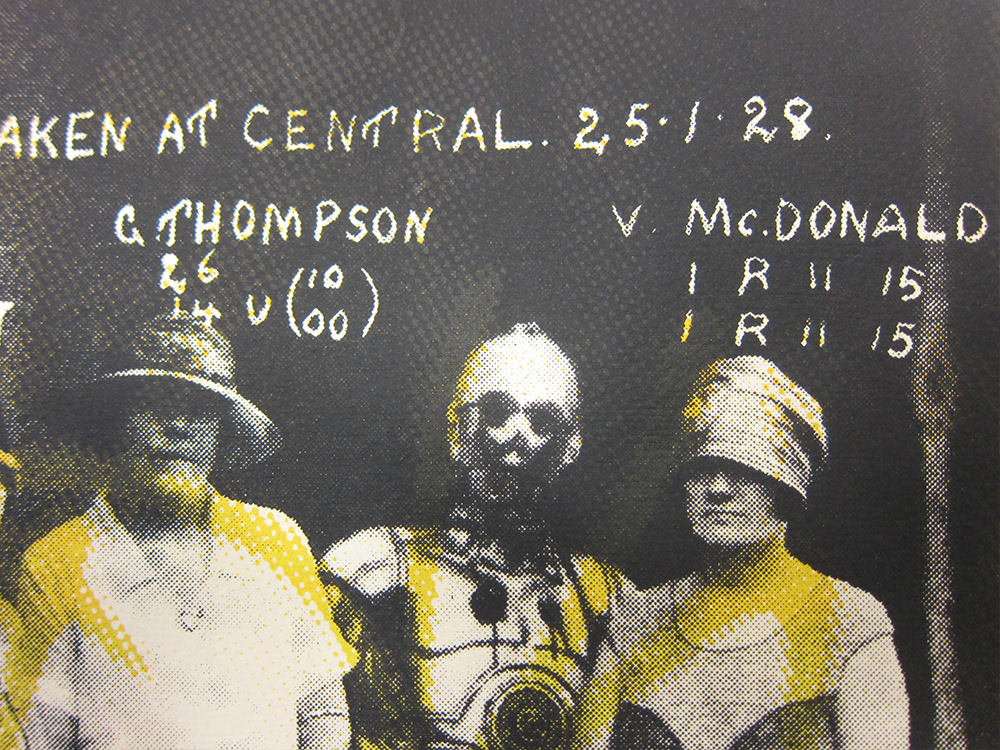 AKEN AT CENTRAL. 25·1·28.
G THOMPSON
26
14 U (10
00)
V. McDONALD
1 R 11 15
1 R 11 15